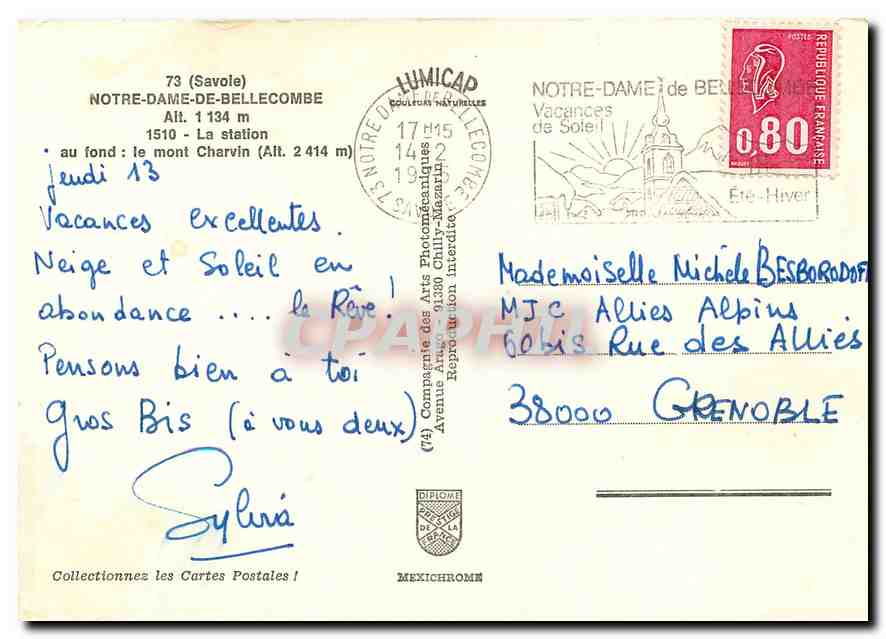 73 (Savoie)
NOTRE-DAME-DE-BELLECOMBE
Alt. 1 134 m
1510 - La station
au fond : le mont Charvin (Alt. 2 414 m)
jeudi 13
Vacances excellentes.
Neige et Soleil en
abondance .... le Rêve !
Pensons bien à toi
Gros Bis (à vous deux)
Sylvia
Collectionnez les Cartes Postales !
LUMICAP
COULEURS NATURELLES
73 NOTRE DAME DE BELLECOMBE
SAVOIE
17 H15
14-2
19 5
(74) Compagnie des Arts Photomécaniques
Avenue Arago 91380 Chilly-Mazarin
Reproduction interdite
DIPLOME
PRESTIGE
DE LA
FRANCE
MEXICHROME
NOTRE-DAME de BELLECOMBE
Vacances
de Soleil
Été-Hiver
POSTES
REPUBLIQUE FRANÇAISE
0,80
CPAPHIL
Mademoiselle Michèle BESBORODOF
MJC Allies Alpins
60bis Rue des Alliés
38000 GRENOBLE